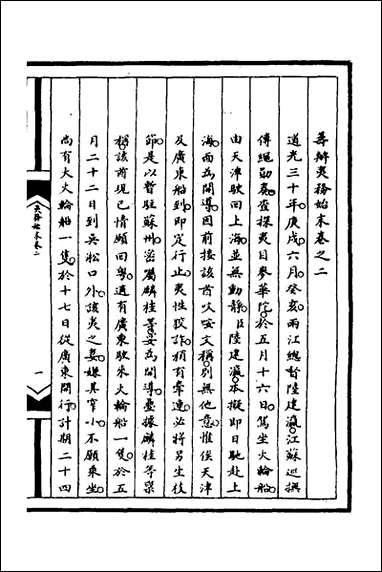 籌辦夷務始末卷之二
道光三十年庚戌六月癸亥兩江總督陸建瀛江蘇巡撫
傅繩勳奏查探夷目麥華陀於五月十六日駕坐火輪船
由天津駛回上海並無動靜臣陸建瀛本擬即日馳赴上
海面為開導因前接該酋以咉文稱別無他意惟俟天津
及廣東船到即定行止夷性狡詐稍有牽連必將另生枝
節是以暫駐蘇州密屬麟桂等妥為開導疊據麟桂等稟
稱該酋現已情願回粵適有廣東駛來火輪船一隻於五
月二十二日到吳淞口外該夷之妻嫌其窄小不願乘坐
尚有大火輪船一隻於十七日從廣東開行計期二十四
夷務始末卷二
一